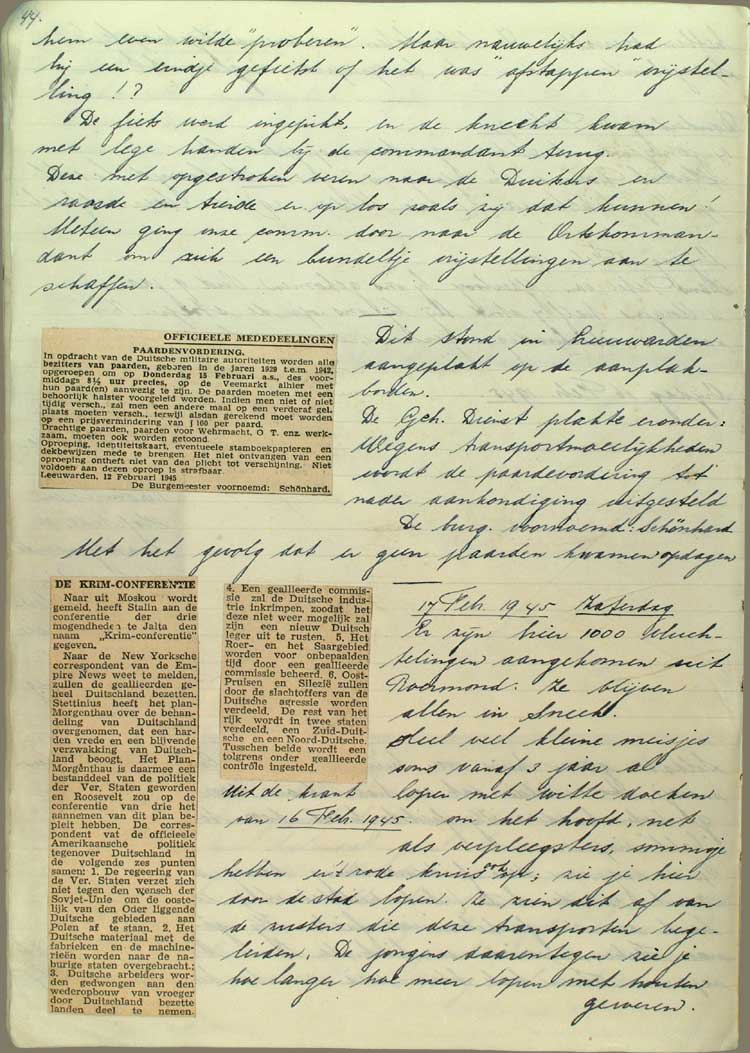 44.
hem even wilde "proberen". Maar nauwelijks had
hij een eindje gefietst of het was "afstappen" vrijstel-
ling !?
De fiets werd ingepikt, en de knecht kwam
met lege handen bij de commandant terug.
Deze met opgestroken veren naar de Duitsers en
raasde en tierde er op los zoals zij dat kunnen!
Meteen ging onze comm. door naar de Ortskomman-
dant om zich een bundeltje vrijstellingen aan te
schaffen.
OFFICIEELE MEDEDEELINGEN
PAARDENVORDERING.
In opdracht van de Duitsche militaire autoriteiten worden alle
bezitters van paarden, geboren in de jaren 1929 t.e.m. 1942,
opgeroepen om op Donderdag 15 Februari a.s., des voor-
middags 8½ uur precies, op de Veemarkt alhier met
hun paard(en) aanwezig te zijn. De paarden moeten met een
behoorlijk halster voorgeleid worden. Indien men niet of niet
tijdig versch., zal men een andere maal op een verderaf gel.
plaats moeten versch., terwijl alsdan gerekend moet worden
op een prijsvermindering van ƒ 100 per paard.
Drachtige paarden, paarden voor Wehrmacht, O T. enz. werk-
zaam, moeten ook worden getoond.
Oproeping, identiteitskaart, eventueele stamboekpapieren en
dekbewijzen mede te brengen. Het niet ontvangen van een
oproeping ontheft niet van den plicht tot verschijning. Niet
voldoen aan dezen oproep is strafbaar.
Leeuwarden, 12 Februari 1945
De Burgemeester voornoemd: Schönhard.
Dit stond in Leeuwarden
aangeplakt op de aanplak-
borden.
De Geh. Dienst plakte eronder:
Wegens transportmoeilijkheden
wordt de paardevordering tot
nader aankondiging uitgesteld
De burg. voornoemd: Schönhard
Met het gevolg dat er geen paarden kwamen opdagen
DE KRIM-CONFERENTIE
Naar uit Moskou wordt
gemeld, heeft Stalin aan de
conferentie der drie
mogendheden te Jalta den
naam „Krim-conferentie"
gegeven.
Naar de New Yorksche
correspondent van de Em-
pire News weet te melden,
zullen de geallieerden ge-
heel Duitschland bezetten.
Stettinius heeft het plan-
Morgenthau over de behan-
deling van Duitschland
overgenomen, dat een har-
den vrede en een blijvende
verzwakking van Duitsch-
land beoogt. Het Plan-
Morgenthau is daarmee een
bestanddeel van de politiek
der Ver. Staten geworden
en Roosevelt zou op de
conferentie van drie het
aannemen van dit plan be-
pleit hebben. De corres-
pondent vat de officieele
Amerikaansche politiek
tegenover Duitschland in
de volgende zes punten
samen: 1. De regeering van
de Ver. Staten verzet zich
niet tegen den wensch der
Sovjet-Unie om de ooste-
lijk van den Oder liggende
Duitsche gebieden aan
Polen af te staan. 2. Het
Duitsche materiaal met de
fabrieken en de machine-
rieën worden naar de na-
burige staten overgebracht.
3. Duitsche arbeiders wor-
den gedwongen aan den
wederopbouw van vroeger
door Duitschland bezette
landen deel te nemen.
4. Een geallieerde commis-
sie zal de Duitsche indus-
trie inkrimpen, zoodat het
deze niet weer mogelijk zal
zijn een nieuw Duitsch
leger uit te rusten. 5. Het
Roer- en het Saargebied
worden voor onbepaalden
tijd door een geallieerde
commissie beheerd. 6. Oost-
Pruisen en Silezië zullen
door de slachtoffers van de
Duitsche agressie worden
verdeeld. De rest van het
rijk wordt in twee staten
verdeeld, een Zuid-Duit-
sche en een Noord-Duitsche
Tusschen beide wordt een
tolgrens onder geallieerde
contrôle ingesteld.
Uit de krant
van 16 Feb. 1945.
17 Feb. 1945 Zaterdag
Er zijn hier 1000 vluch-
telingen aangekomen uit
Roermond. Ze blijven
allen in Sneek.
Heel veel kleine meisjes
soms vanaf 3 jaar al
lopen met witte doeken
om het hoofd, net
als verpleegsters, sommige
hebben er 't rode kruis ook op; zie je hier
door de stad lopen. Ze zien dit af van
de zusters die deze transporten bege-
leiden. De jongens daarentegen zie je
hoe langer hoe meer lopen met houten
geweren.